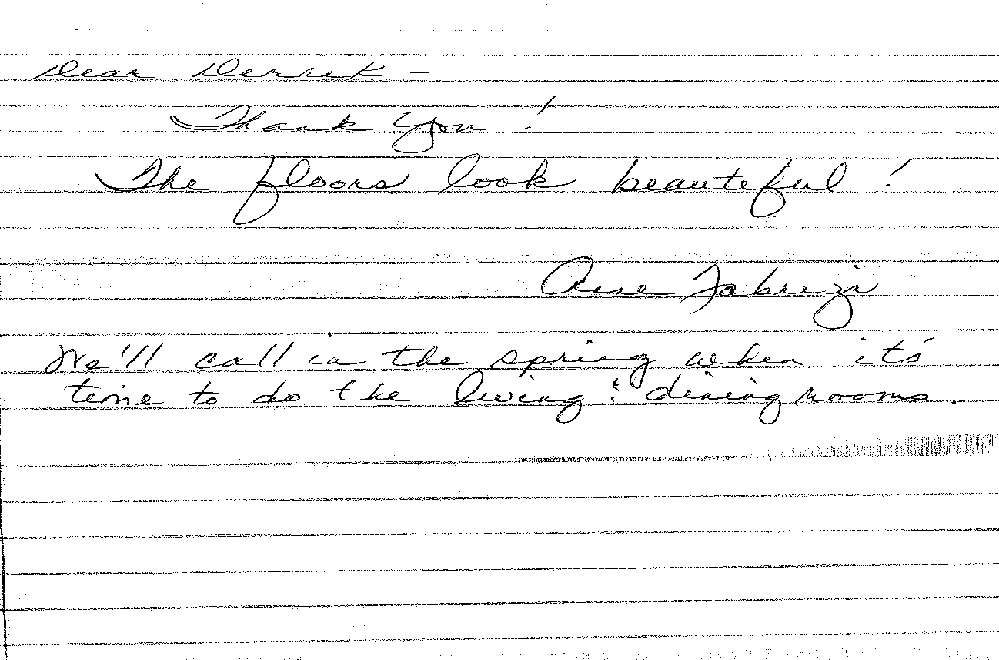 Dear Derrick -
Thank You!
The floors look beautiful!
Fabrizi
We'll call in the spring when it's
time to do the living & dining rooms.